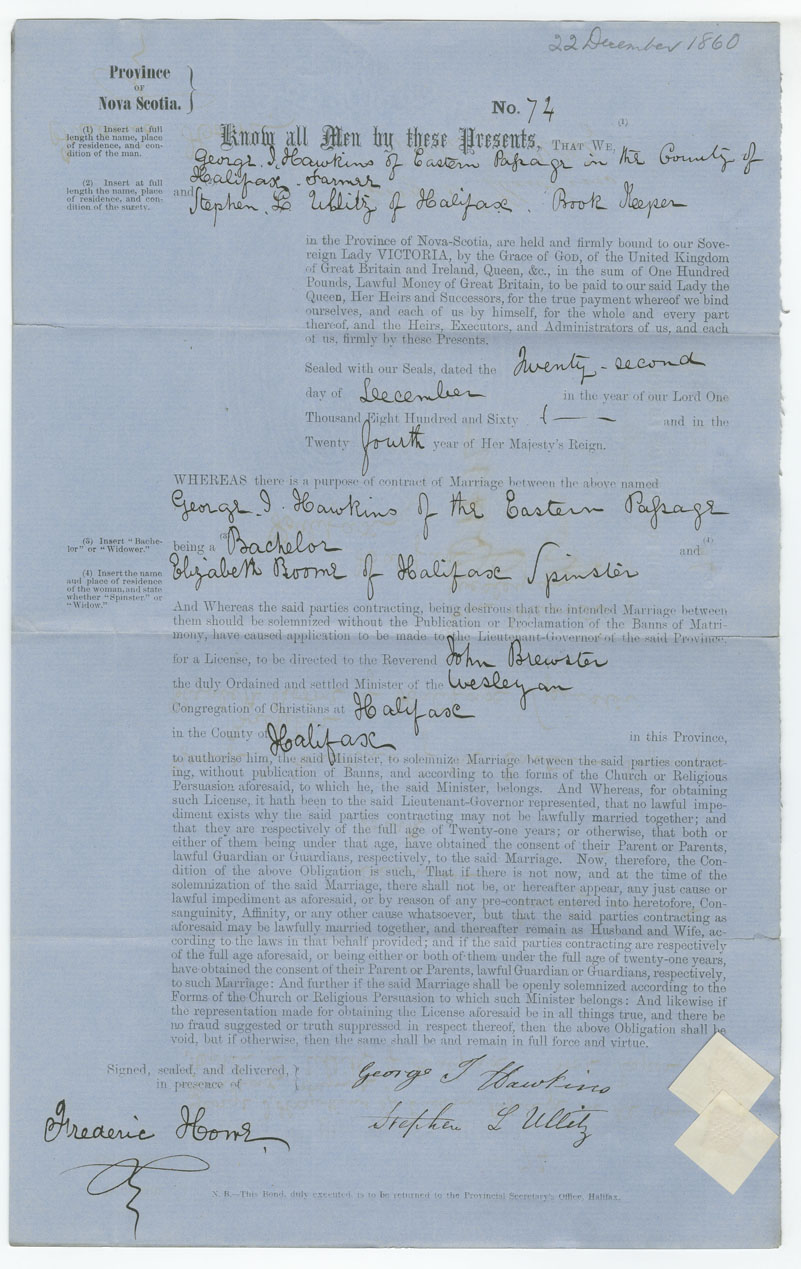 22 December 1860
Province
OF
Nova Scotia.
No. 74
(1) Insert at full
length the name, place
of residence, and con-
dition of the man.
(1)
Know all Men by these Presents, THAT WE,
George I. Hawkins of Eastern Passage in the County of
Halifax. Farmer
(2) Insert at full
length the name, place
of residence, and con-
dition of the surety.
and
Stephen L Ullitz of Halifax. Book Keeper
in the Province of Nova-Scotia, are held and firmly bound to our Sove-
reign Lady VICTORIA, by the Grace of GOD, of the United Kingdom
of Great Britain and Ireland, Queen, &c., in the sum of One Hundred
Pounds, Lawful Money of Great Britain, to be paid to our said Lady the
Queen, Her Heirs and Successors, for the true payment whereof we bind
ourselves, and each of us by himself, for the whole and every part
thereof, and the Heirs, Executors, and Administrators of us, and each
of us, firmly by these Presents.
Sealed with our Seals, dated the Twenty-second
day of December in the year of our Lord One
Thousand Eight Hundred and Sixty and in the
Twenty fourth year of Her Majesty's Reign.
WHEREAS there is a purpose of contract of Marriage between the above named
George I. Hawkins of the Eastern Passage
(3) Insert "Bache-
lor" or "Widower."
being a (3) Bachelor and (4)
(4) Insert the name
and place of residence
of the woman, and state
whether "Spinster," or
"Widow."
Elizabeth Boome of Halifax Spinster
And Whereas the said parties contracting, being desirous that the intended Marriage between
them should be solemnized without the Publication or Proclamation of the Banns of Matri-
mony, have caused application to be made to the Lieutenant-Governor of the said Province,
for a License, to be directed to the Reverend John Brewster
the duly Ordained and settled Minister of the Wesleyan
Congregation of Christians at Halifax
in the County of Halifax in this Province,
to authorise him, the said Minister, to solemnize Marriage between the said parties contract-
ing, without publication of Banns, and according to the forms of the Church or Religious
Persuasion aforesaid, to which he, the said Minister, belongs. And Whereas, for obtaining
such License, it hath been to the said Lieutenant-Governor represented, that no lawful impe-
diment exists why the said parties contracting may not be lawfully married together; and
that they are respectively of the full age of Twenty-one years; or otherwise, that both or
either of them being under that age, have obtained the consent of their Parent or Parents,
lawful Guardian or Guardians, respectively, to the said Marriage. Now, therefore, the Con-
dition of the above Obligation is such, That if there is not now, and at the time of the
solemnization of the said Marriage, there shall not be, or hereafter appear, any just cause or
lawful impediment as aforesaid, or by reason of any pre-contract entered into heretofore, Con-
sanguinity, Affinity, or any other cause whatsoever, but that the said parties contracting as
aforesaid may be lawfully married together, and thereafter remain as Husband and Wife, ac-
cording to the laws in that behalf provided; and if the said parties contracting are respectively
of the full age aforesaid, or being either or both of them under the full age of twenty-one years,
have obtained the consent of their Parent or Parents, lawful Guardian or Guardians, respectively,
to such Marriage: And further if the said Marriage shall be openly solemnized according to the
Forms of the Church or Religious Persuasion to which such Minister belongs: And likewise if
the representation made for obtaining the License aforesaid be in all things true, and there be
no fraud suggested or truth suppressed in respect thereof, then the above Obligation shall be
void, but if otherwise, then the same shall be and remain in full force and virtue.
Signed, sealed, and delivered,
in presence of
George I Hawkins
Stephen L Ullitz
Frederic Howe
N. B.—This Bond, duly executed, is to be returned to the Provincial Secretary's Office, Halifax.